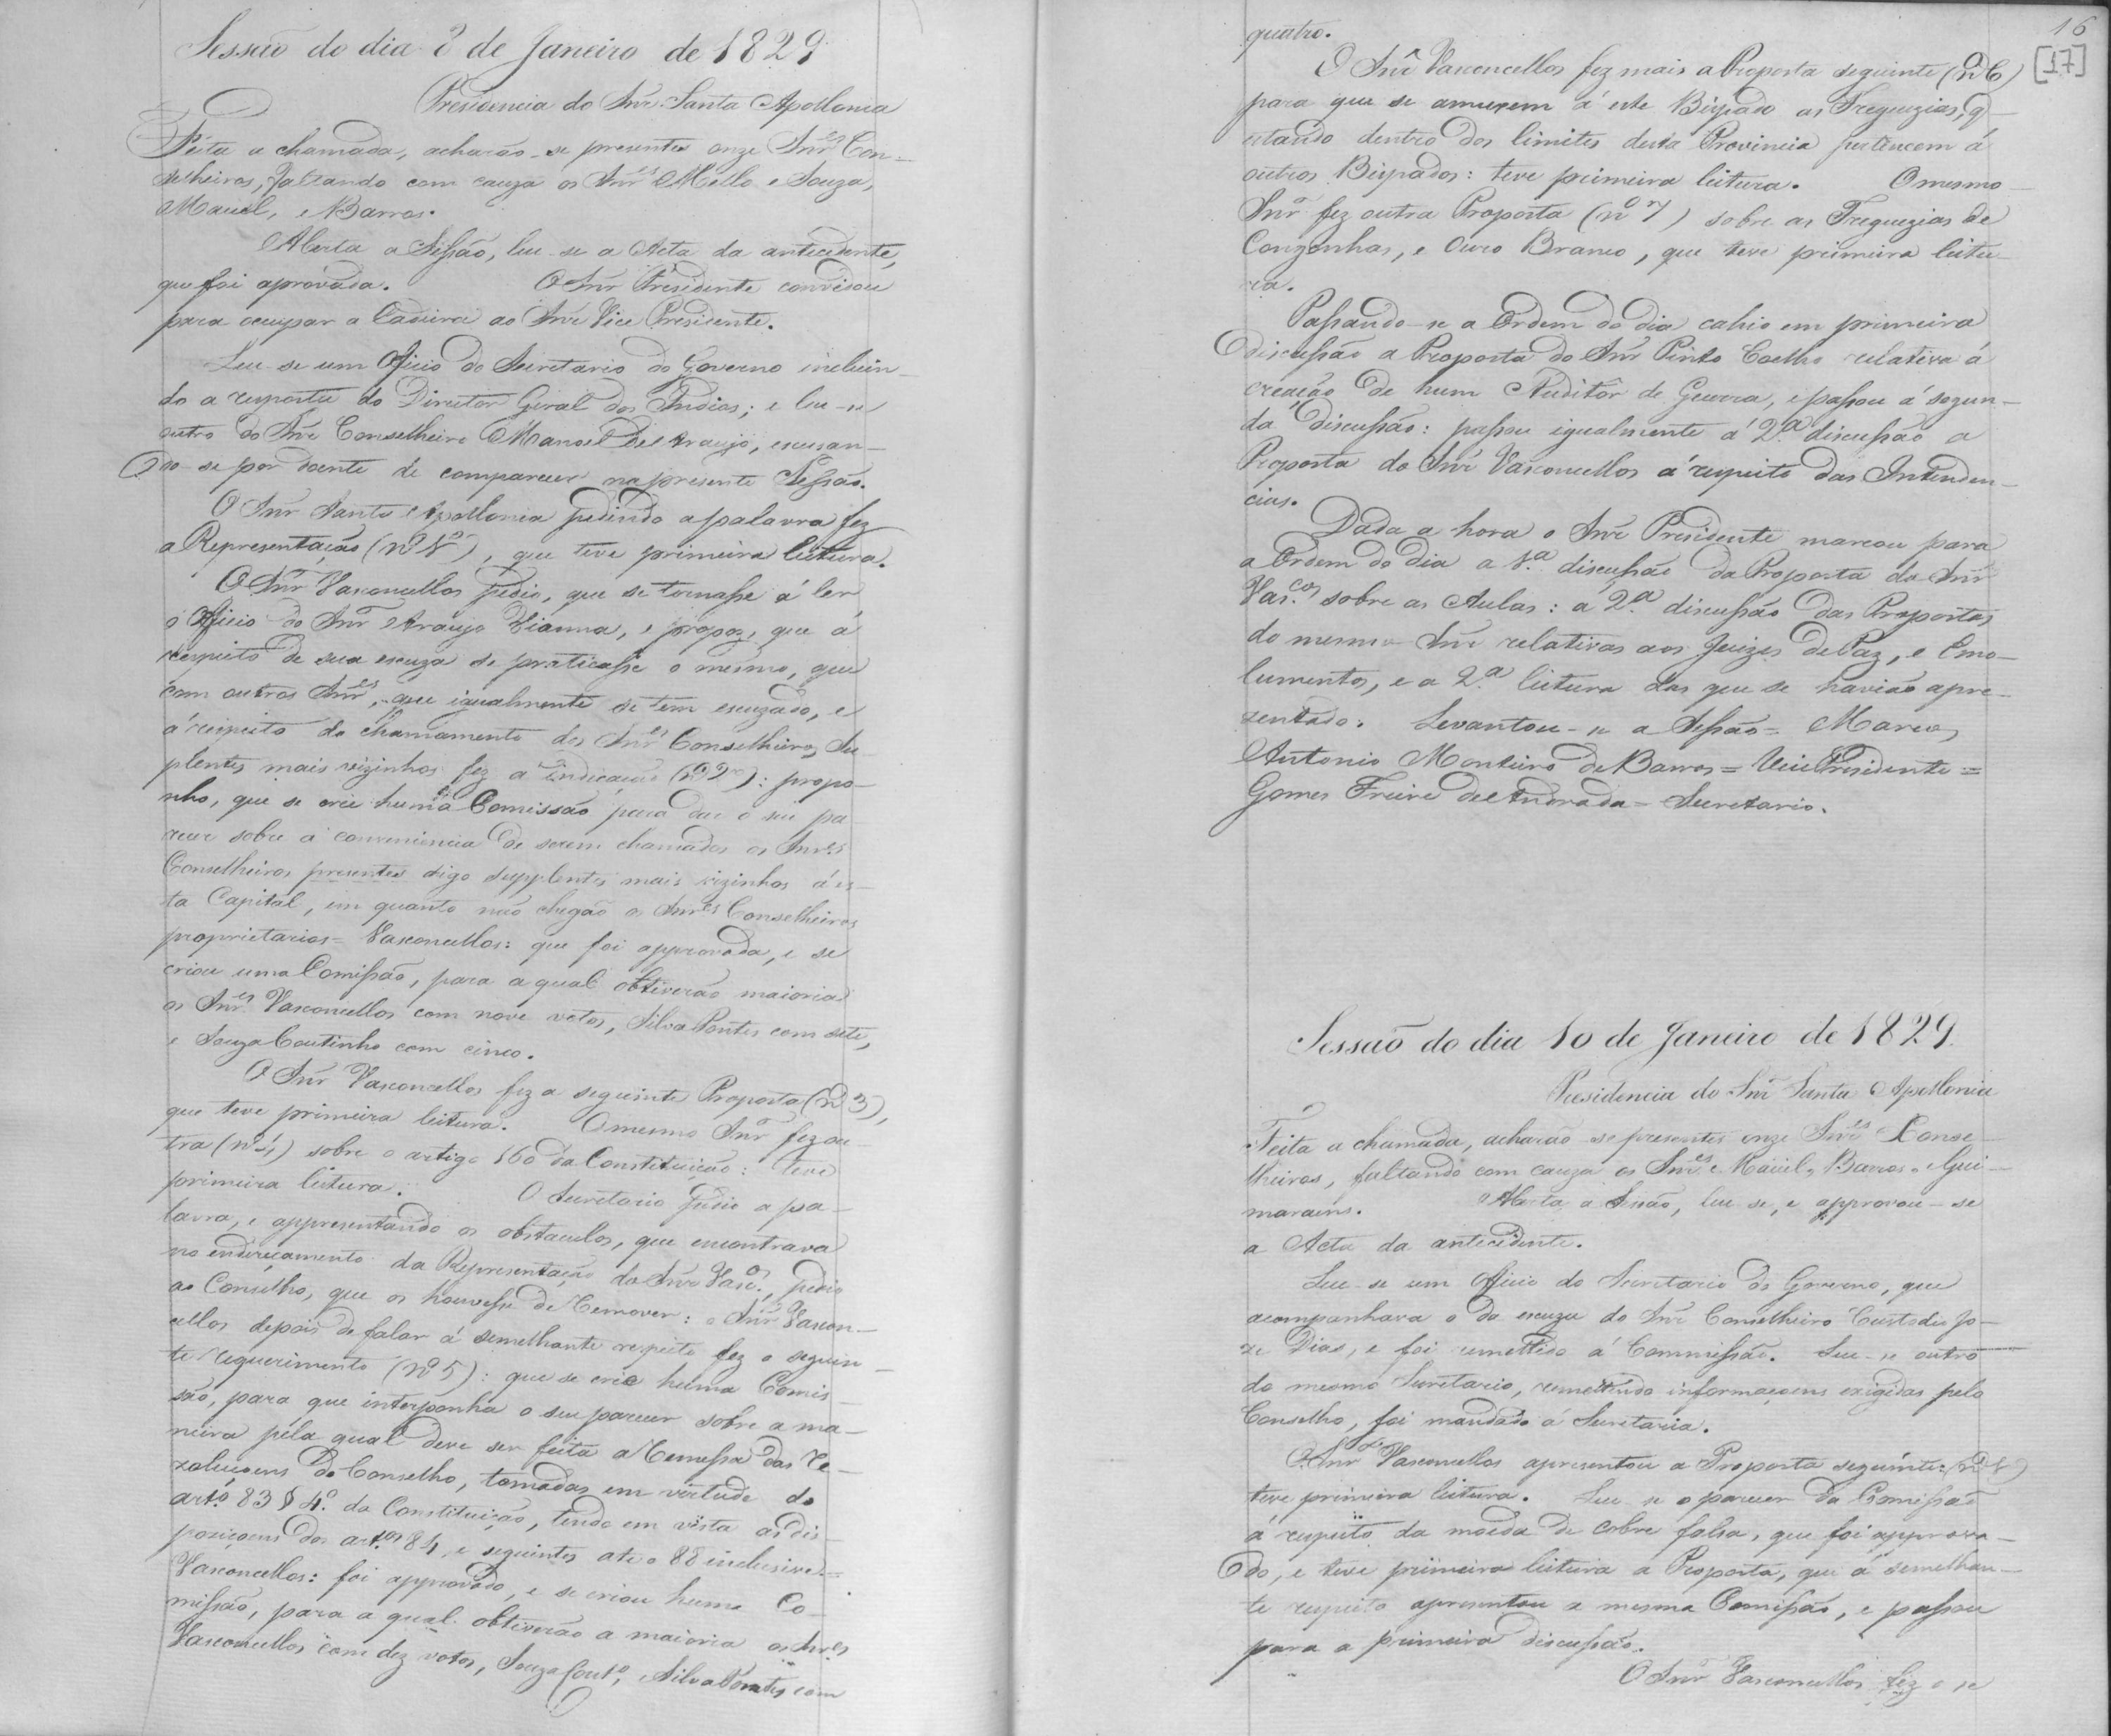 Sessão do dia 8 de Janeiro de 1829
Presidencia do Snr. Santa Apollonia
Feita a chamada, acharão-se presentes onze Snres Con-
selheiros, faltando com cauza os Snres Mello e Souza,
Maciel, e Barros.
Aberta a Sessão, leu-se a Acta da antecedente,
que foi aprovada. O Snr Presidente convidou
para occupar a Cadeira ao Snr Vice Presidente.
Leu-se um Officio do Secretario do Governo incluin-
do a resposta do Director Geral dos Indios; e leu-se
outro do Snr Conselheiro Manoel de Araujo, escusan-
do-se por doente de comparecer na presente Sessão.
O Snr Santa Apollonia pedindo a palavra fez
a Representação (nº 1º), que teve primeira leitura.
O Snr Vasconcellos pedio, que se tornasse á ler
o Officio do Snr Araujo Vianna, e propoz, que á
respeito de sua escuza se praticasse o mesmo, que
com outros Snres, que igualmente se tem escuzado, e
á respeito do chamamento dos Snres Conselheiros Su-
plentes mais vizinhos fez a Indicação (nº 2º): propo-
nho, que se crie huma Comissão para dar o seu pa-
recer sobre a conveniencia de serem chamados os Snres
Conselheiros presentes digo supplentes mais vizinhos á es-
ta Capital, em quanto não chegão os Snres Conselheiros
proprietarios = Vasconcellos: que foi approvada, e se
criou uma Comissão, para a qual obtiverão maioria
os Snres Vasconcellos com nove votos, Silva Pontes com sete,
e Souza Coutinho com cinco.
O Snr Vasconcellos fez a seguinte Proposta (nº 3),
que teve primeira leitura. O mesmo Snr fez ou-
tra (nº 4) sobre o artigo 160 da Constituição: teve
primeira leitura. O Secretario pedio a pa-
lavra, e appresentando os obstaculos, que encontrava
no endereçamento da Representação do Snr Vasc.os, pedio
ao Conselho, que os houvesse de remover: o Snr Vascon-
cellos depois de falar á semelhante respeito fez o seguin-
te requerimento (nº 5): que se crie huma Comis-
são, para que interponha o seu parecer sobre a ma-
neira pela qual deve ser feita a remessa das re-
zoluçoens do Conselho, tomadas em virtude do
art.º 83 § 4.º da Constituição, tendo em vista as dis-
poziçoens dos art.os 84, e seguintes até o 88 inclusive =
Vasconcellos: foi approvado, e se criou huma Co-
missão, para a qual obtiverão a maioria os Snres
Vasconcellos com dez votos, Souza Cout.º, e Silva Pontes com
16
[17]
quatro.
O Snr Vasconcellos fez mais a Proposta seguinte (nº 6)
para que se annexem á este Bispado as Freguezias, q
estando dentro dos limites desta Provincia pertencem á
outros Bispados: teve primeira leitura. O mesmo
Snr fez outra Proposta (nº 7) sobre as Freguezias de
Congonhas, e Ouro Branco, que teve primeira leitu-
ra.
Passando-se a Ordem do dia cahio em primeira
discussão a Proposta do Snr Pinto Coelho relativa á
creação de hum Auditor de Guerra, e passou á segun-
da discussão: passou igualmente á 2.ª discussão a
Proposta do Snr Vasconcellos á respeito das Intenden-
cias.
Dada a hora o Snr Presidente marcou para
a Ordem do dia a 1.ª discussão da Proposta do Snr
Vas.cos sobre as Aulas: a 2.ª discussão das Propostas
do mesmo Snr relativas aos Juizes de Paz, e Emo-
lumentos, e a 2.ª leitura das que se havião apre-
zentado. Levantou-se a Sessão = Marcos
Antonio Monteiro de Barros = Vice Presidente =
Gomes Freire de Andrada = Secretario.
Sessão do dia 10 de Janeiro de 1829.
Presidencia do Snr Santa Apollonia
Feita a chamada, acharão-se presentes onze Snres Conse
lheiros, faltando com cauza os Snres Maciel, Barros, e Gui-
maraens. Aberta a Sessão, leu-se, e approvou-se
a Acta da antecedente.
Leu-se um Officio do Secretario do Governo, que
acompanhava o da escuza do Snr Conselheiro Custodio Jo-
ze Dias, e foi remettido á Commissão. Leu-se outro
do mesmo Secretario, remettendo informaçoens exigidas pelo
Conselho, foi mandado á Secretaria.
O Snr Vasconcellos apresentou a Proposta seguinte:
teve primeira leitura. Leu-se o parecer da Comissão
á respeito da moeda de cobre falsa, que foi approva-
do, e teve primeira leitura a Proposta, que á semelhan-
te respeito apresentou a mesma Comissão, e passou
para a primeira discussão.
O Snr Vasconcellos fez o se